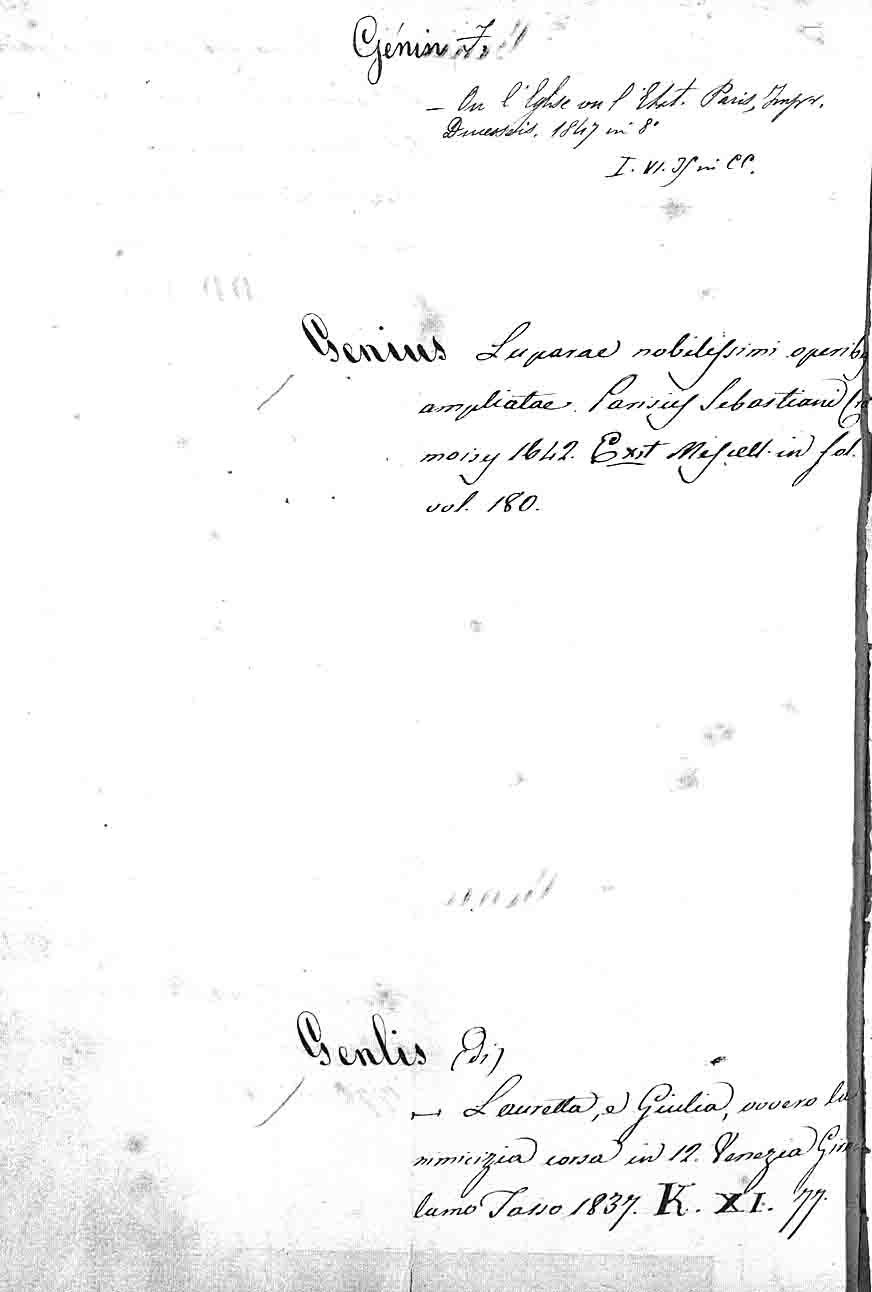 Génin F.
— Ou l'Eglise ou l'Etat. Paris, Impr.
Ducessois. 1847 in 8°
I. VI. in CC.
Genius Luparae nobilissimi operib
ampliatae. Parisiis Sebastiani Cra
moisy 1642. Exst Miscell. in fol.
vol. 180.
Genlis (di)
— Lauretta, e Giulia, ovvero la
nimicizia corsa in 12. Venezia Giro
lamo Tasso 1837. K. XI. 77.